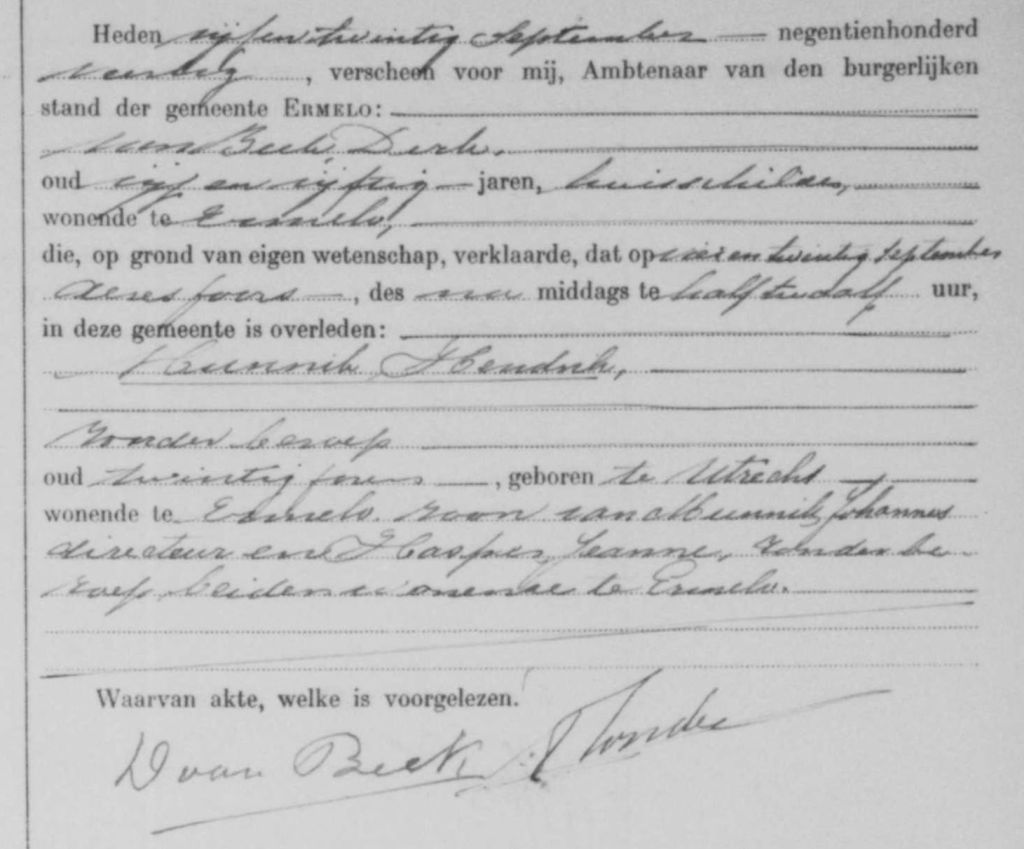 Heden vijfentwintig september negentienhonderd
veertig, verscheen voor mij, Ambtenaar van den burgerlijken
stand der gemeente ERMELO:
van Beek, Derk,
oud vijf en vijftig jaren, huisschilder,
wonende te Ermelo,
die, op grond van eigen wetenschap, verklaarde, dat op vier en twintig september
deres jaars, des na middags te half twaalf uur,
in deze gemeente is overleden:
Munnik, Hendrik,
zonder beroep
oud twintig jaren, geboren te Utrecht
wonende te Ermelo. zoon van Munnik, Johannes
directeur en Hasper, Jeanne, zonder be-
roep, beiden wonende te Ermelo.
Waarvan akte, welke is voorgelezen.
D van Beek